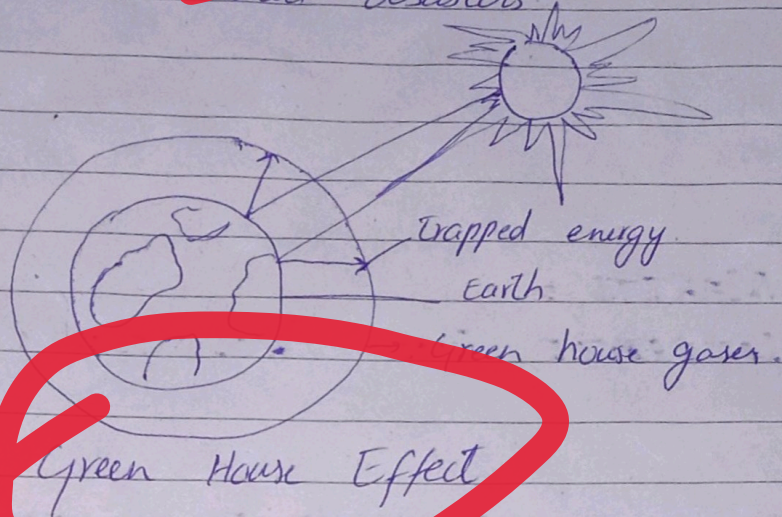 Trapped energy
Earth
Green house gases.
Green House Effect